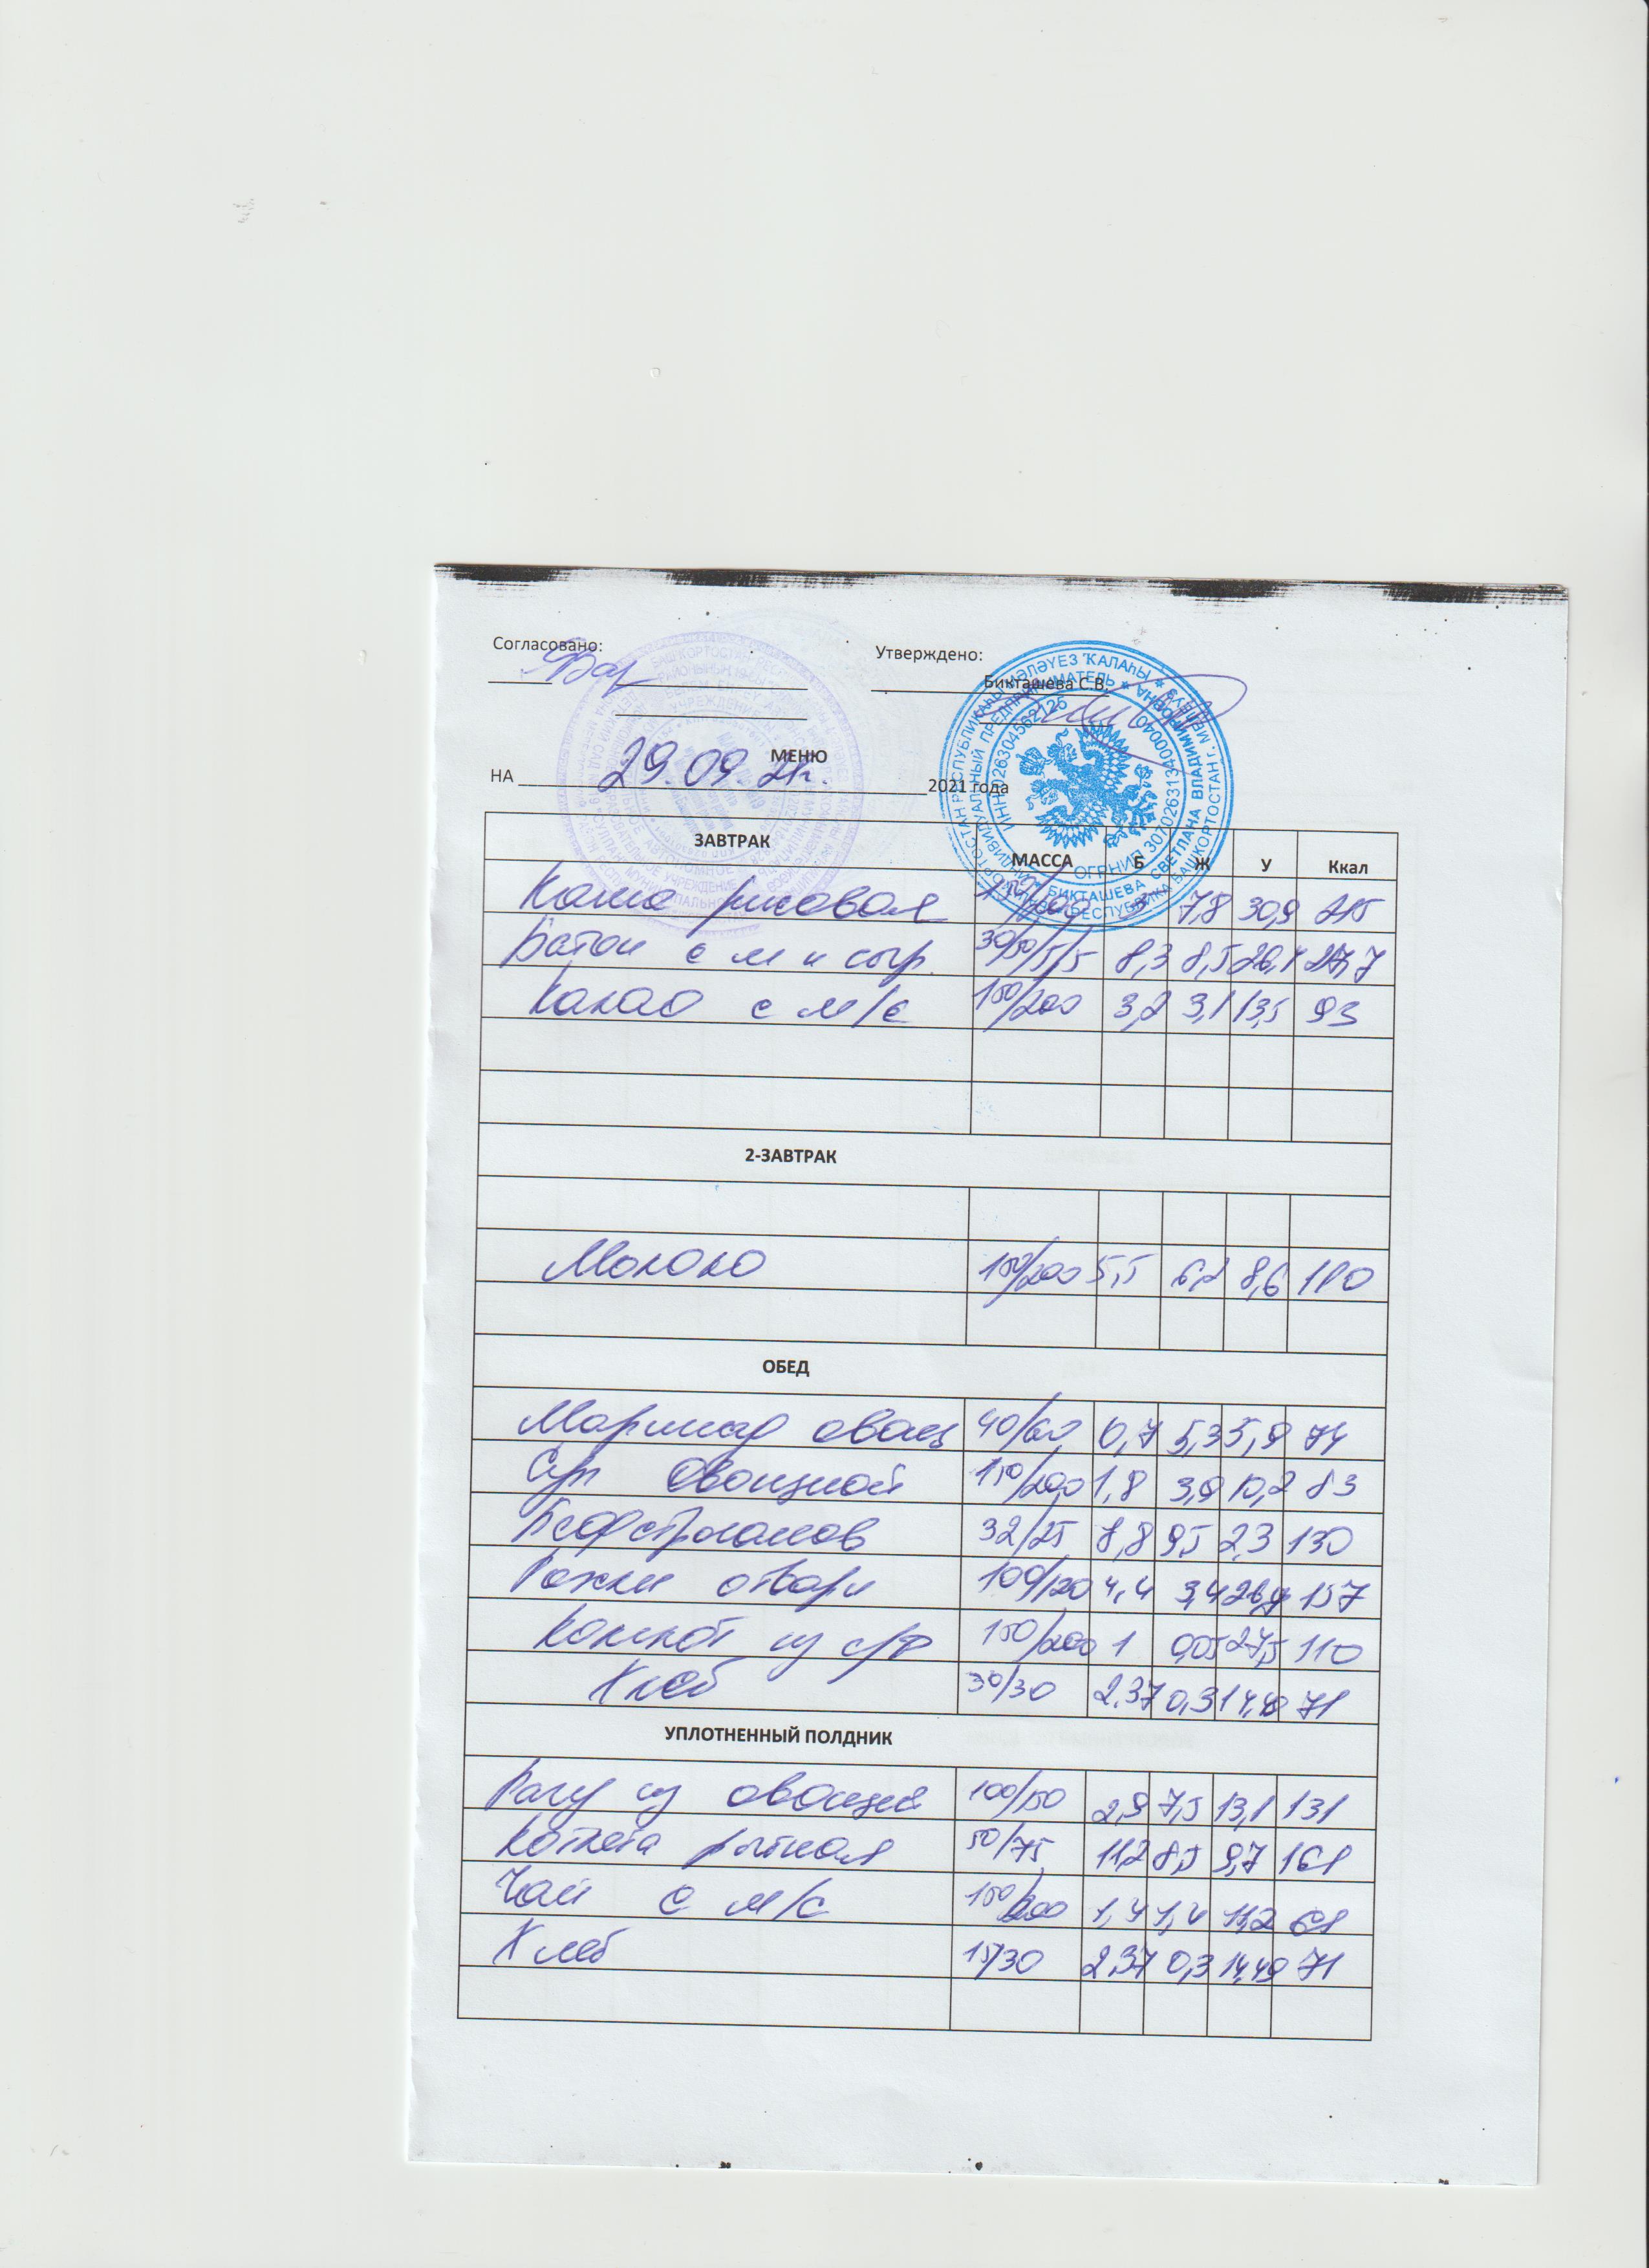 Согласовано:
Утверждено:
Бикташева С.В.
МЕНЮ
НА 29.09.21г. 2021 года
ЗАВТРАК МАССА Б Ж У Ккал
Каша рисовая 150/200 5 7,8 30,9 215
Батон с м и сыр 30/50/5/5 8,3 8,5 26,1
Какао с м/с 150/200 3,2 3,1 13,5 93
2-ЗАВТРАК
Молоко 150/200 5,5 6,2 8,6 110
ОБЕД
Маринад овощ 40/60 0,7 5,3 5,9 74
Суп овощной 150/200 1,8 3,9 10,2 83
Бефстроганов 32/25 8,8 9,5 2,3 130
Рожки отварн 100/120 4,4 3,4 157
Компот из с/ф 150/200 1 0,05 27,5 110
Хлеб 30/30 2,37 0,3 14,49 71
УПЛОТНЕННЫЙ ПОЛДНИК
Рагу из овощей 100/150 2,9 7,5 13,1 131
Котлета рыбная 50/75 11,2 8,5 9,7 161
Чай с м/с 150/200 1,4 1,4 11,2 61
Хлеб 15/30 2,37 0,3 14,49 71